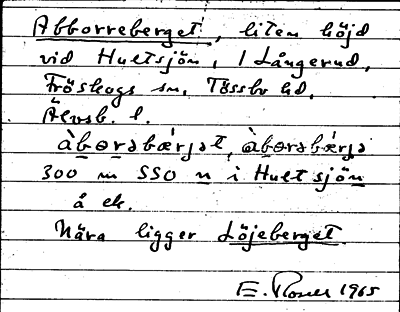 Abborreberget, liten höjd
vid Hultsjön, 1 Långerud,
Fröskogs sn, Tössbo hd,
Älvsb. l.
àbɷrəbǽrjət, àbɷrəbǽrjə
300 m SSO n i Hultsjön
å ek.
Nära ligger Löjeberget
E. Rosell 1965